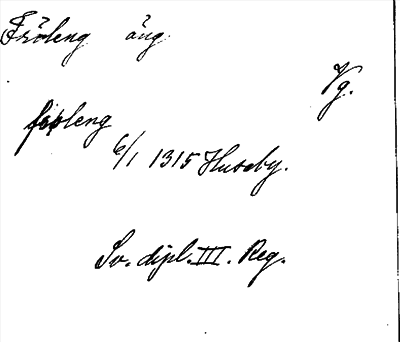 Fröleng äng
Vg.
fröleng
6/1 1315 Huseby.
Sv. dipl. III. Reg.